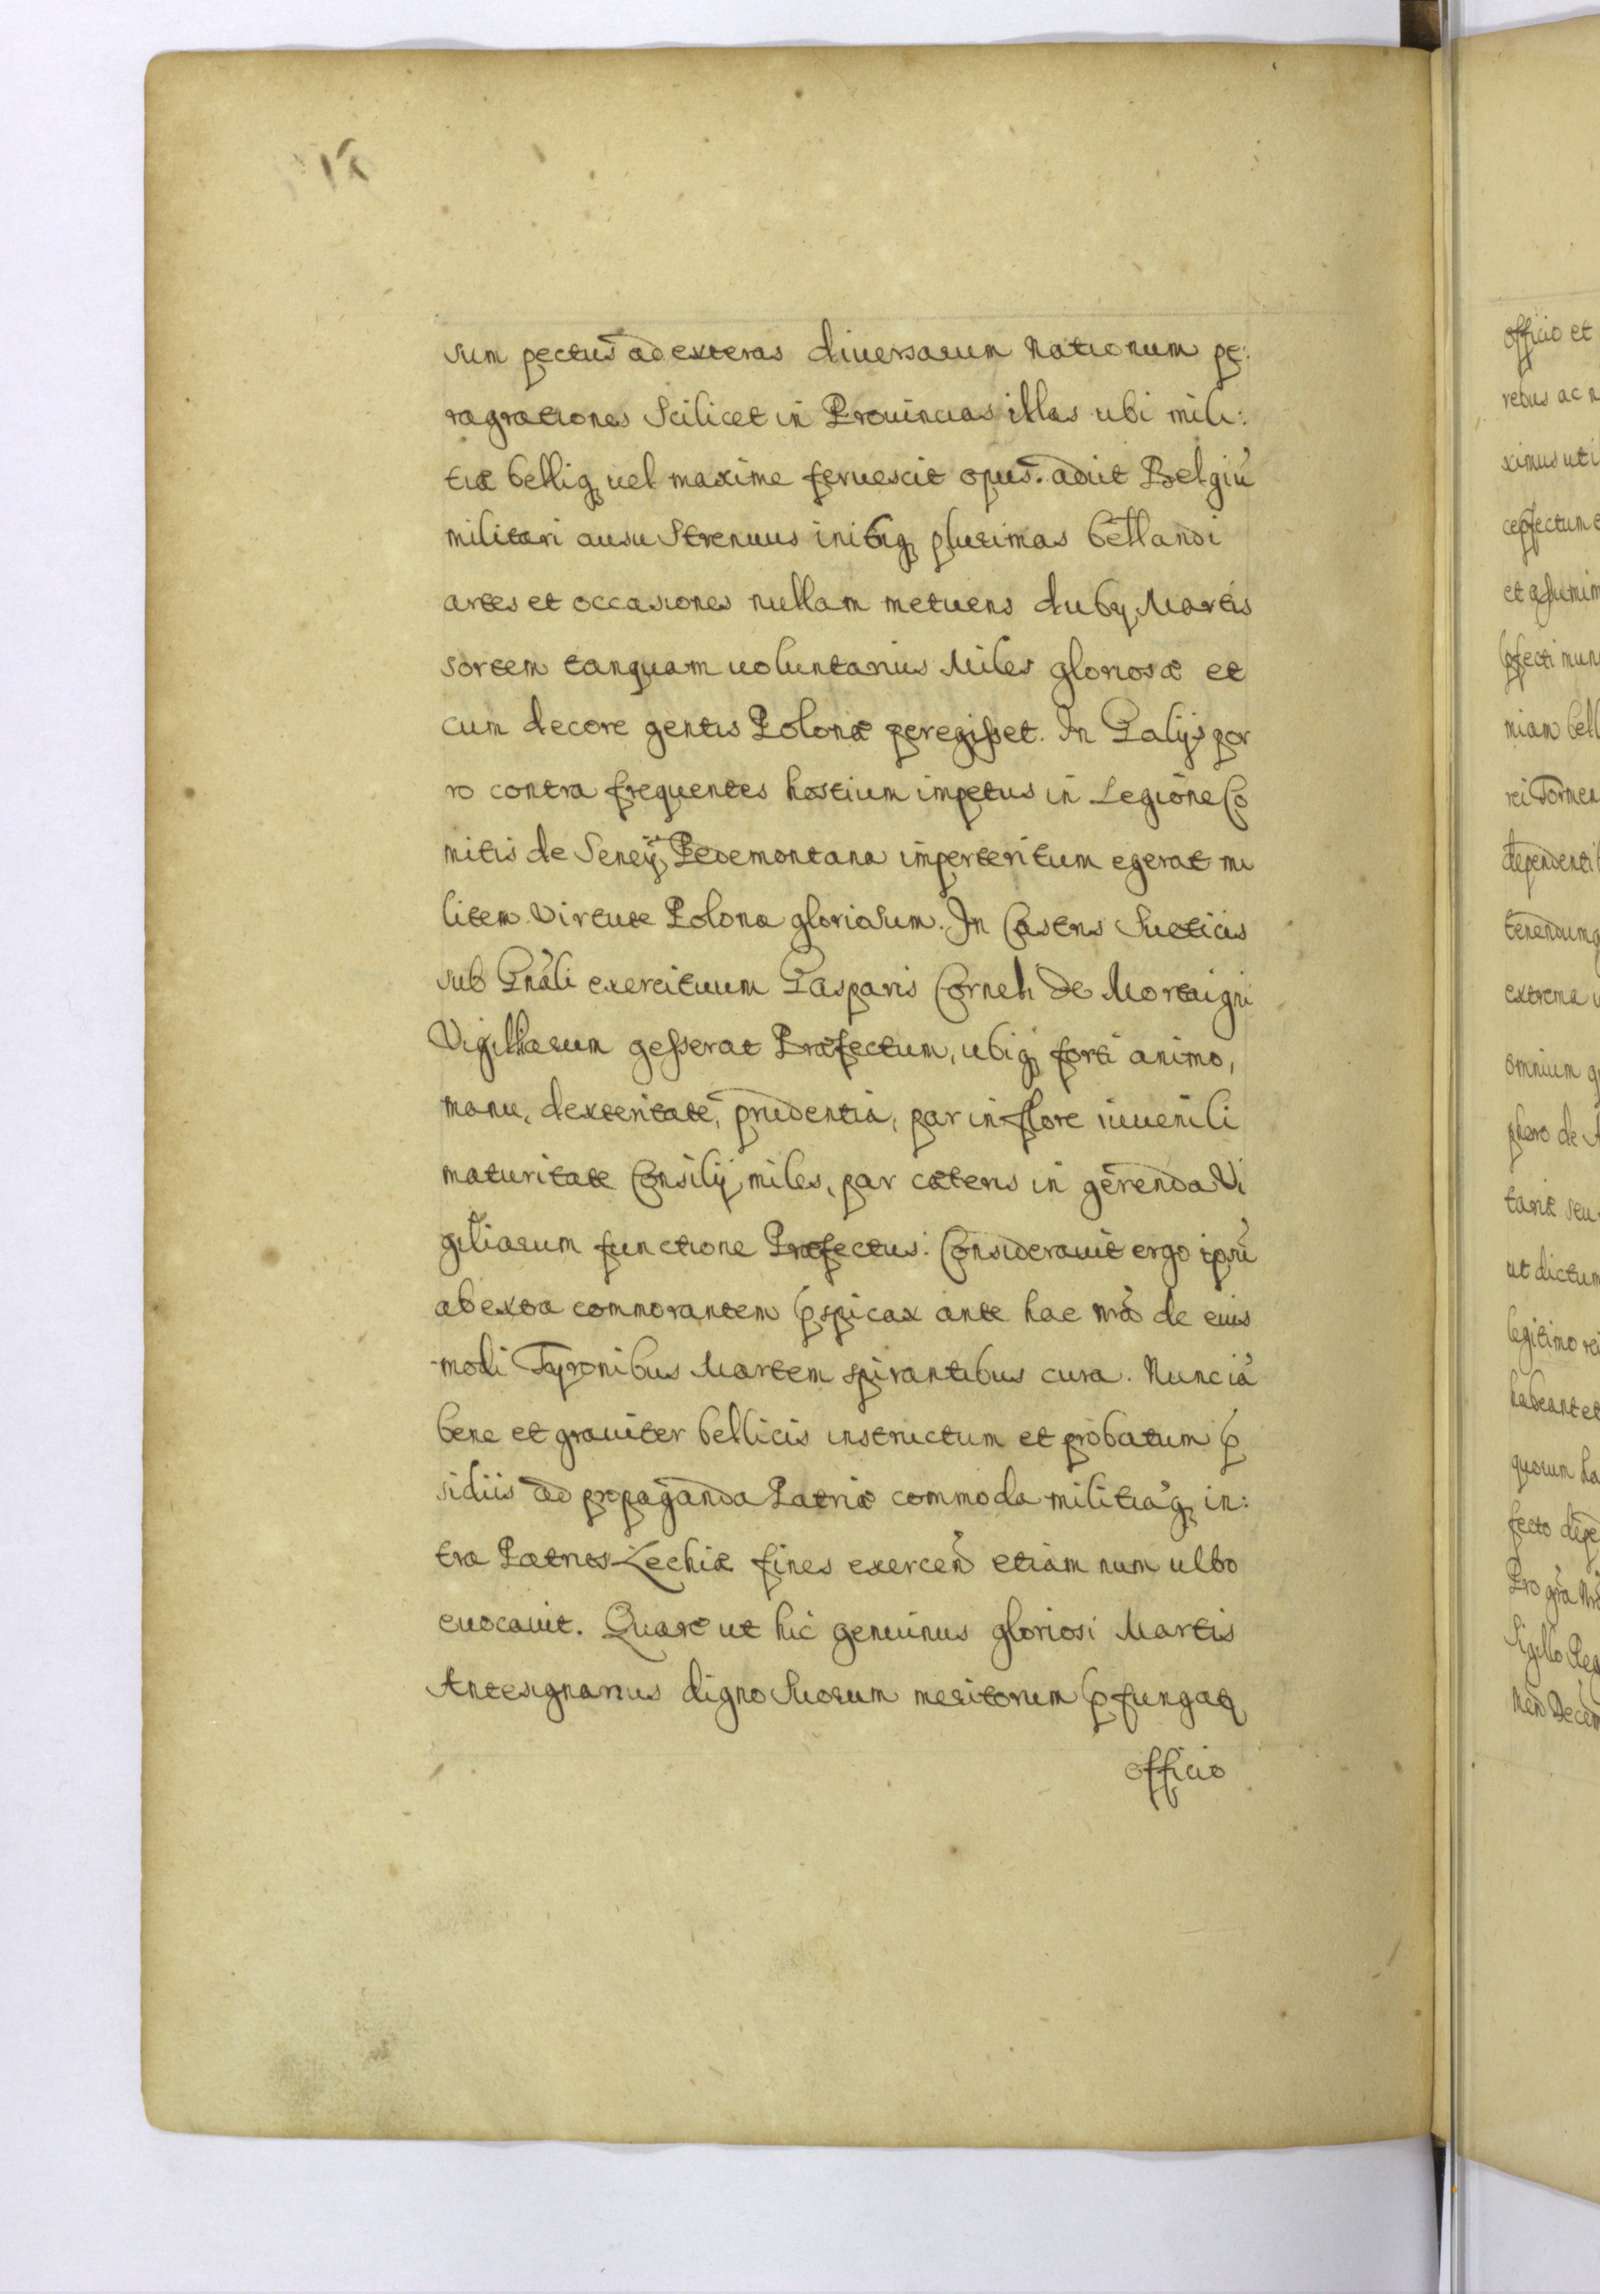 sum pectus ad exteras diuersarum Nationum pe:
ragrationes Scilicet in Prouincias illas ubi mili:
tiæ belliq; uel maxime feruescit opus. adiit Belgiũ
militari ausu Strenuus initisq; plurimas bellandi
artes et occasiones nullam metuens dubÿ Martis
sortem tanquam uoluntarius Miles gloriosæ et
cum decore gentis Polonæ peregisset. In Galijs por
ro contra frequentes hostium impetus in Legione Co
mitis de Seneÿ Pedemontana imperteritum egerat mi
litem Virtute Polona gloriosum. In Castris Sueticis
sub Gnãli exercituum Gasparis Corneli de Mortaigni
Vigiliarum gesserat Præfectum, ubiq; forti animo,
manu, dexteritate, prudentia, par in flore iuuenili
maturitate Consilÿ miles, par cæteris in gerenda Vi
giliarum functione Præfectus. Considerauit ergo ipsũ
ab extra commorantem ꝑspicax ante hac nr̃a de eius
modi Tyronibus Martem spirantibus cura. Nunc iã
bene et grauiter bellicis instructum et probatum ꝑ
sidiis ad propaganda Patriæ commoda militiãq; in:
tra Patrios Lechiæ fines exercen̄d etiam num ultro
euocauit. Quare ut hic genuinus gloriosi Martis
Antesignanus digno Suorum meritorum ꝑfungatꝗ
officio
officio et
rebus ac n
ximus uti
et assumim
miam bell
rei Tormen
dependenti
tenendumq
extrema
omnium
ut dictum
legitimo rei
habeant et
quorum ha
fecto depe
Sigillo Reg